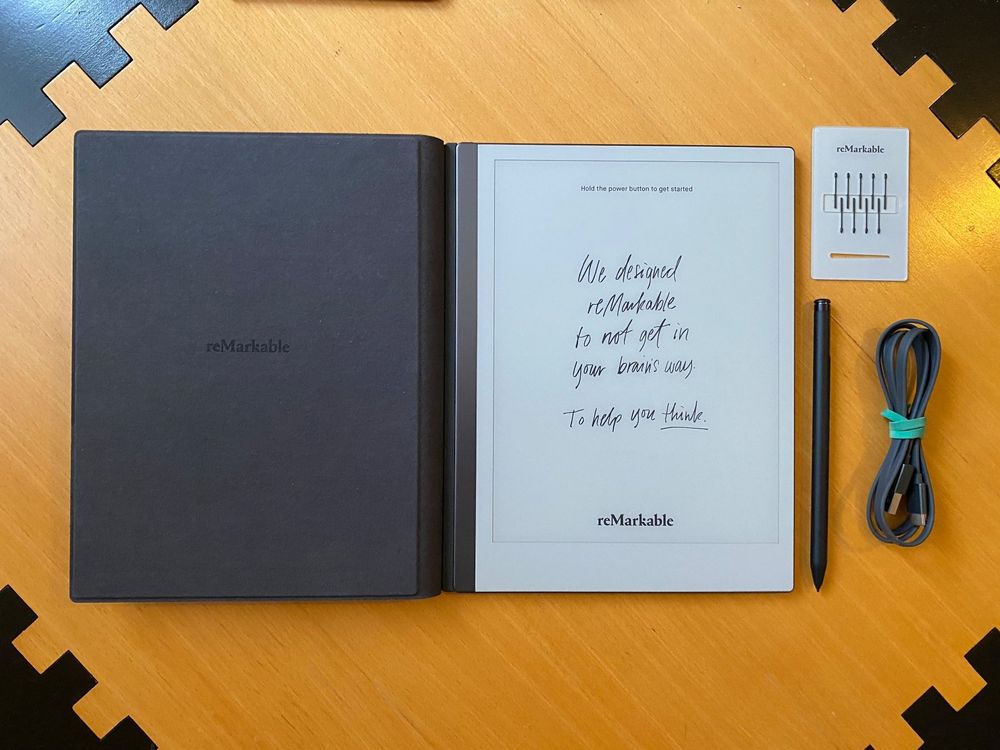 reMarkable
Hold the power button to get started
We designed
reMarkable
to not get in
your brain's way.
To help you think.
reMarkable
reMarkable